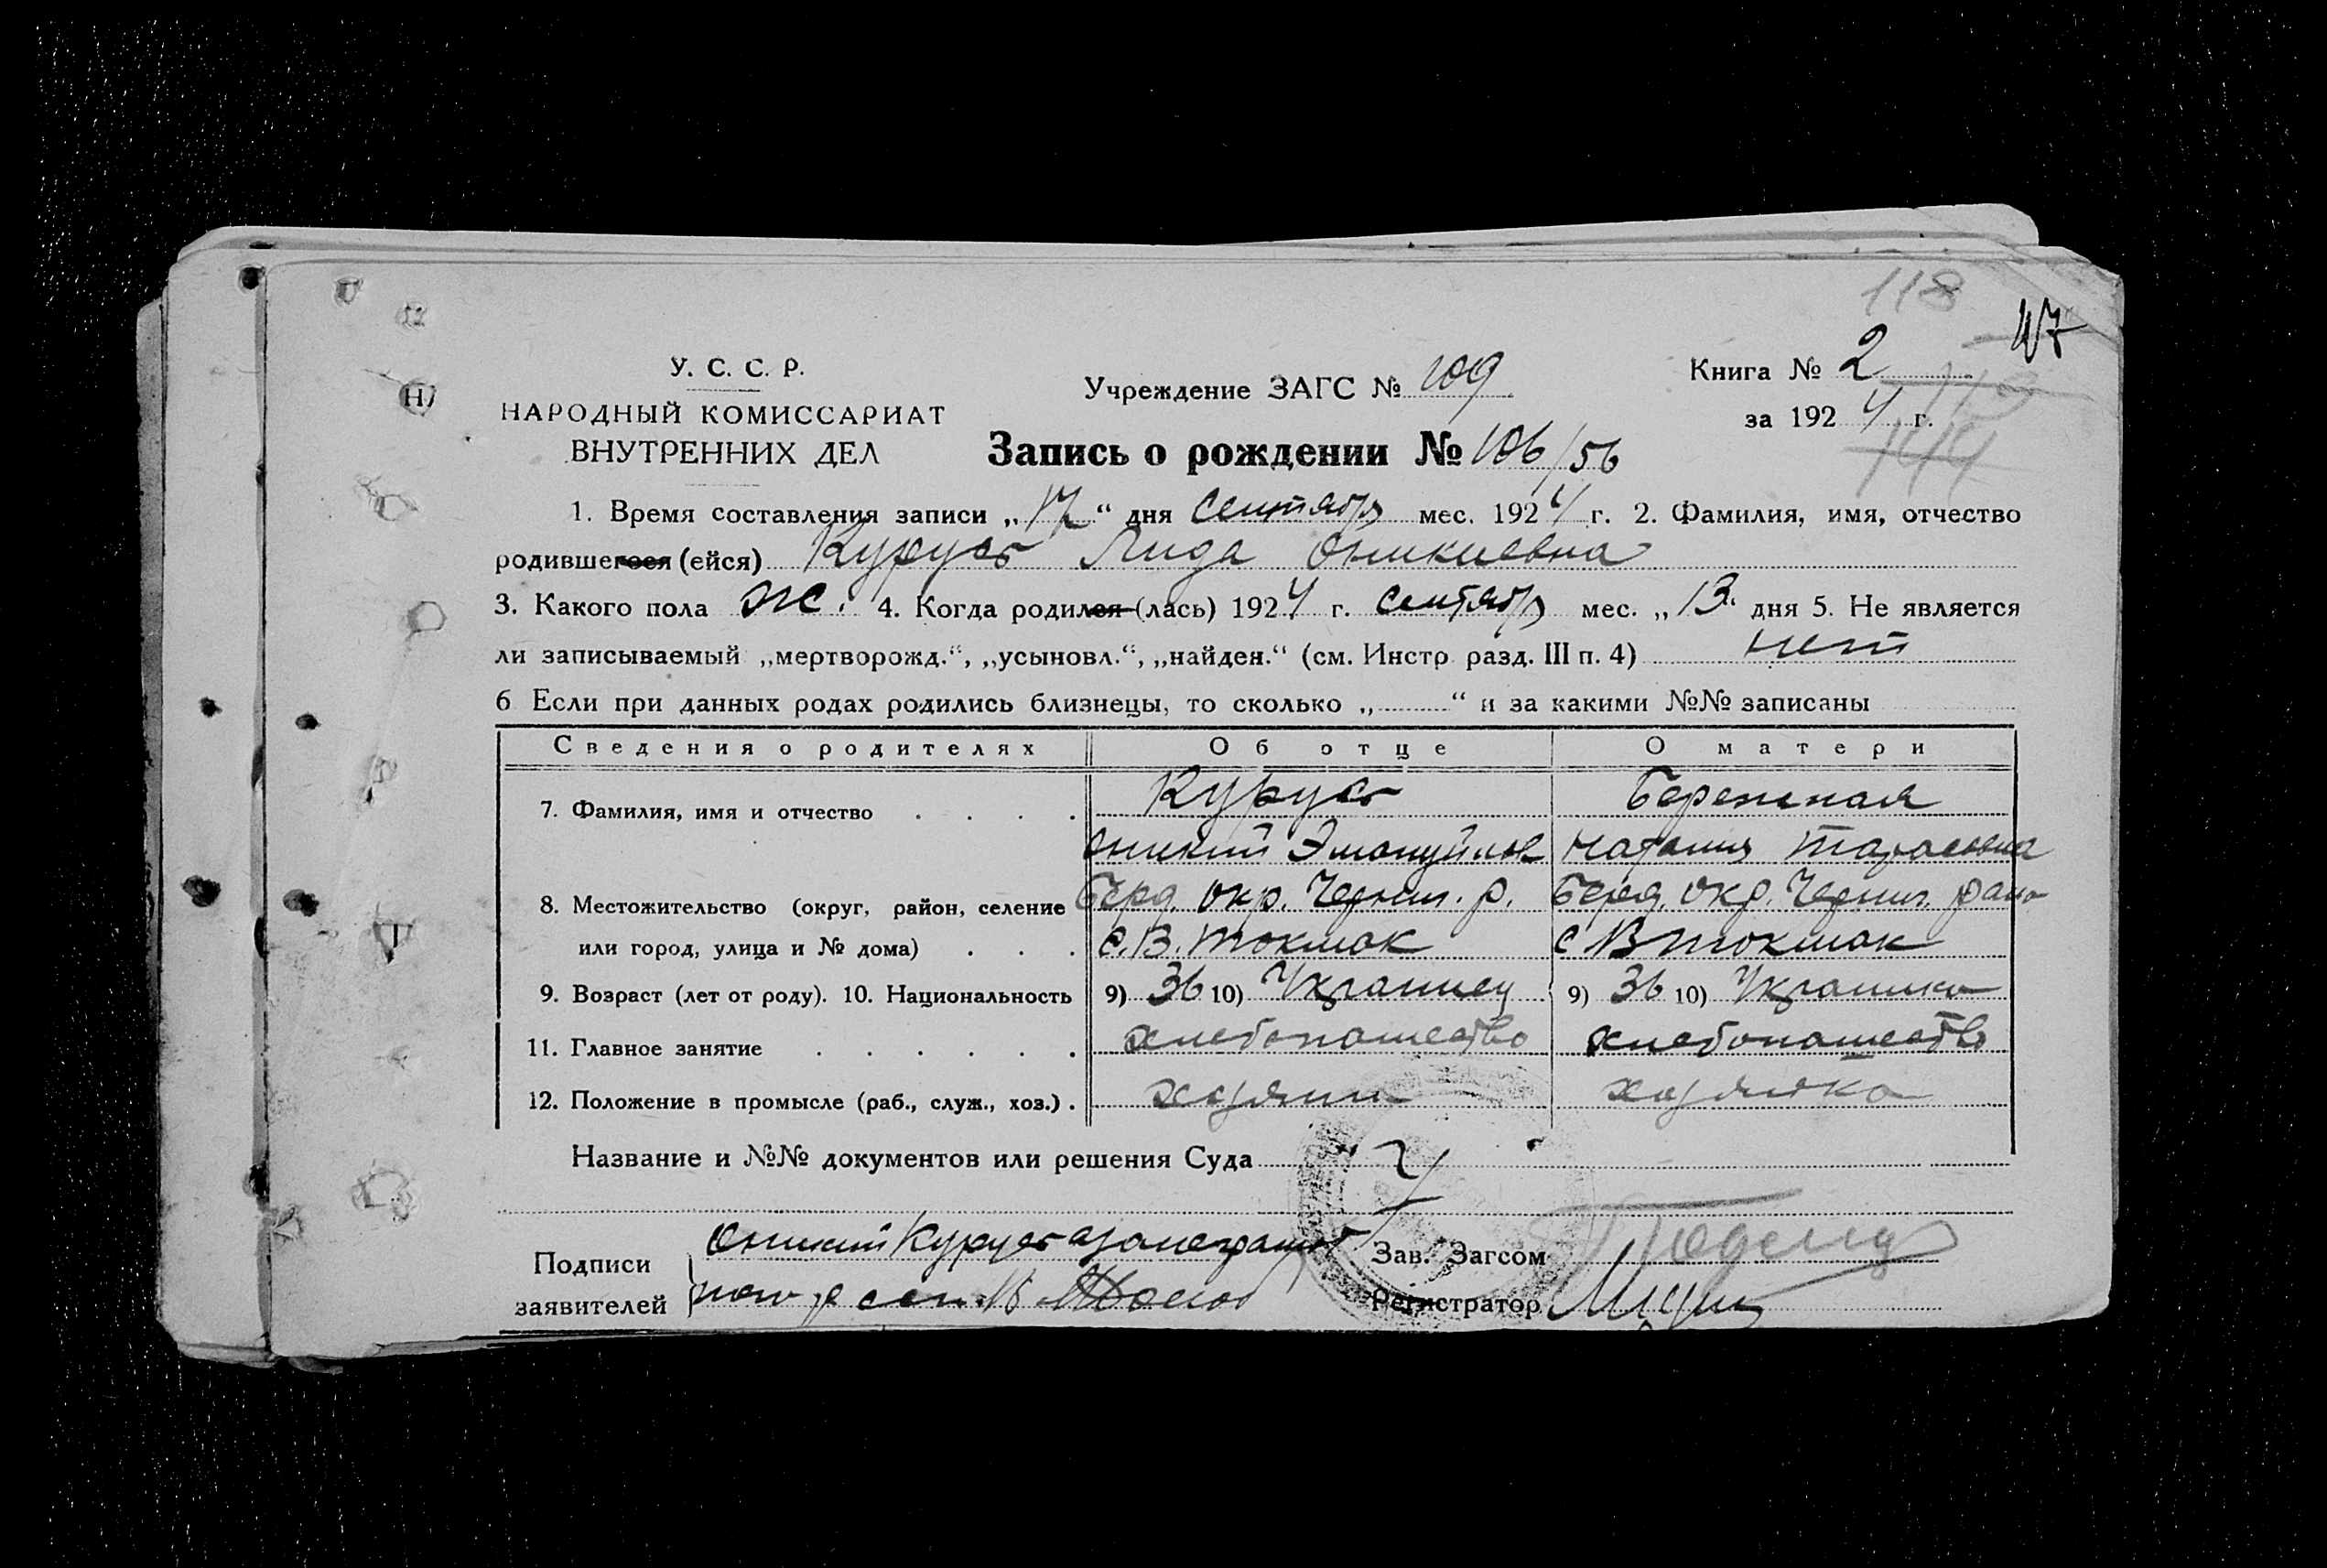 118
117
У. С. С. Р.
НАРОДНЫЙ КОМИССАРИАТ
ВНУТРЕННИХ ДЕЛ
Учреждение ЗАГС № 109
Книга № 2
за 1924 г.
Запись о рождении № 106/56
1. Время составления записи „17“ дня сентября мес. 1924 г. 2. Фамилия, имя, отчество
родившегося (ейся) Курусь Лида Оникиевна
3. Какого пола ж. 4. Когда родился (лась) 1924 г. сентября мес. „13“ дня 5. Не является
ли записываемый „мертворожд.“, „усыновл.“, „найден.“ (см. Инстр разд. III п. 4) нет
6 Если при данных родах родились близнецы, то сколько „ “ и за какими №№ записаны
Сведения о родителях Об отце О матери
7. Фамилия, имя и отчество Курусь Бережная
Оникий Эмануйлов Наталия Тарасовна
8. Местожительство (округ, район, селение Берд. окр. Черниг. р. Берд. окр. Черниг. рано
или город, улица и № дома) с. В. Токмак с В Токмак
9. Возраст (лет от роду). 10. Национальность 9) 36 10) Украинец 9) 36 10) Украинка
11. Главное занятие хлебопашество хлебопашество
12. Положение в промысле (раб., служ., хоз.) хозяин хозяйка
Название и №№ документов или решения Суда
Подписи Оникий Курусь а за неграмот Зав. Загсом
заявителей Регистратор